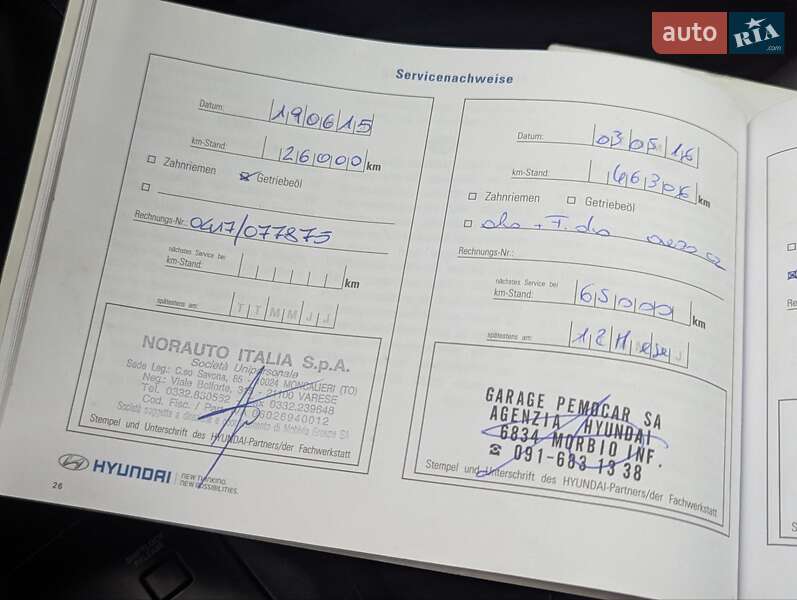 auto RIA .com
Servicenachweise
Datum: 190615
km-Stand: 26000 km
Zahnriemen Getriebeöl
Rechnungs-Nr.: 0417/077875
nächstes Service bei
km-Stand: km
spätestens am: T T M M J J
NORAUTO ITALIA S.p.A.
Società Unipersonale
Sede Leg.: C.so Savona, 85 - 10024 MONCALIERI (TO)
Neg.: Viale Belforte, 21100 VARESE
Tel. 0332.830532 Fax 0332.239648
Cod. Fisc. / Part. 06026940012
Stempel und Unterschrift des HYUNDAI-Partners/der Fachwerkstatt
Datum: 030516
km-Stand: 46306 km
Zahnriemen Getriebeöl
Rechnungs-Nr.:
nächstes Service bei
km-Stand: 65000 km
spätestens am: 12 J
GARAGE PEMOCAR SA
AGENZIA HYUNDAI
6834 MORBIO INF.
☎ 091-683 13 38
Stempel und Unterschrift des HYUNDAI-Partners/der Fachwerkstatt
HYUNDAI NEW THINKING.
NEW POSSIBILITIES.
26